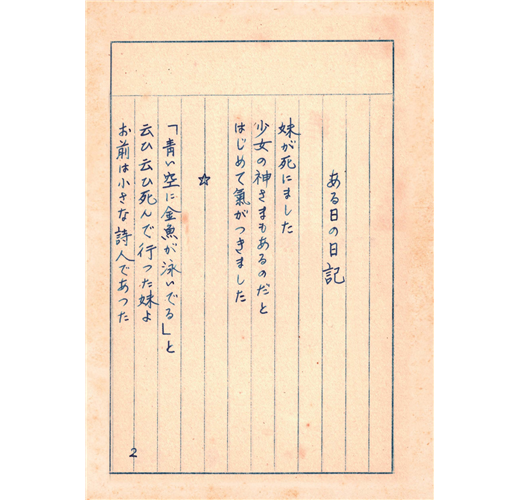 ある日の日記
妹が死にました
少女の神さまもあるのだと
はじめて氣がつきました
☆
「青い空に金魚が泳いでる」と
云ひ云ひ死んで行つた妹よ
お前は小さな詩人であつた
2